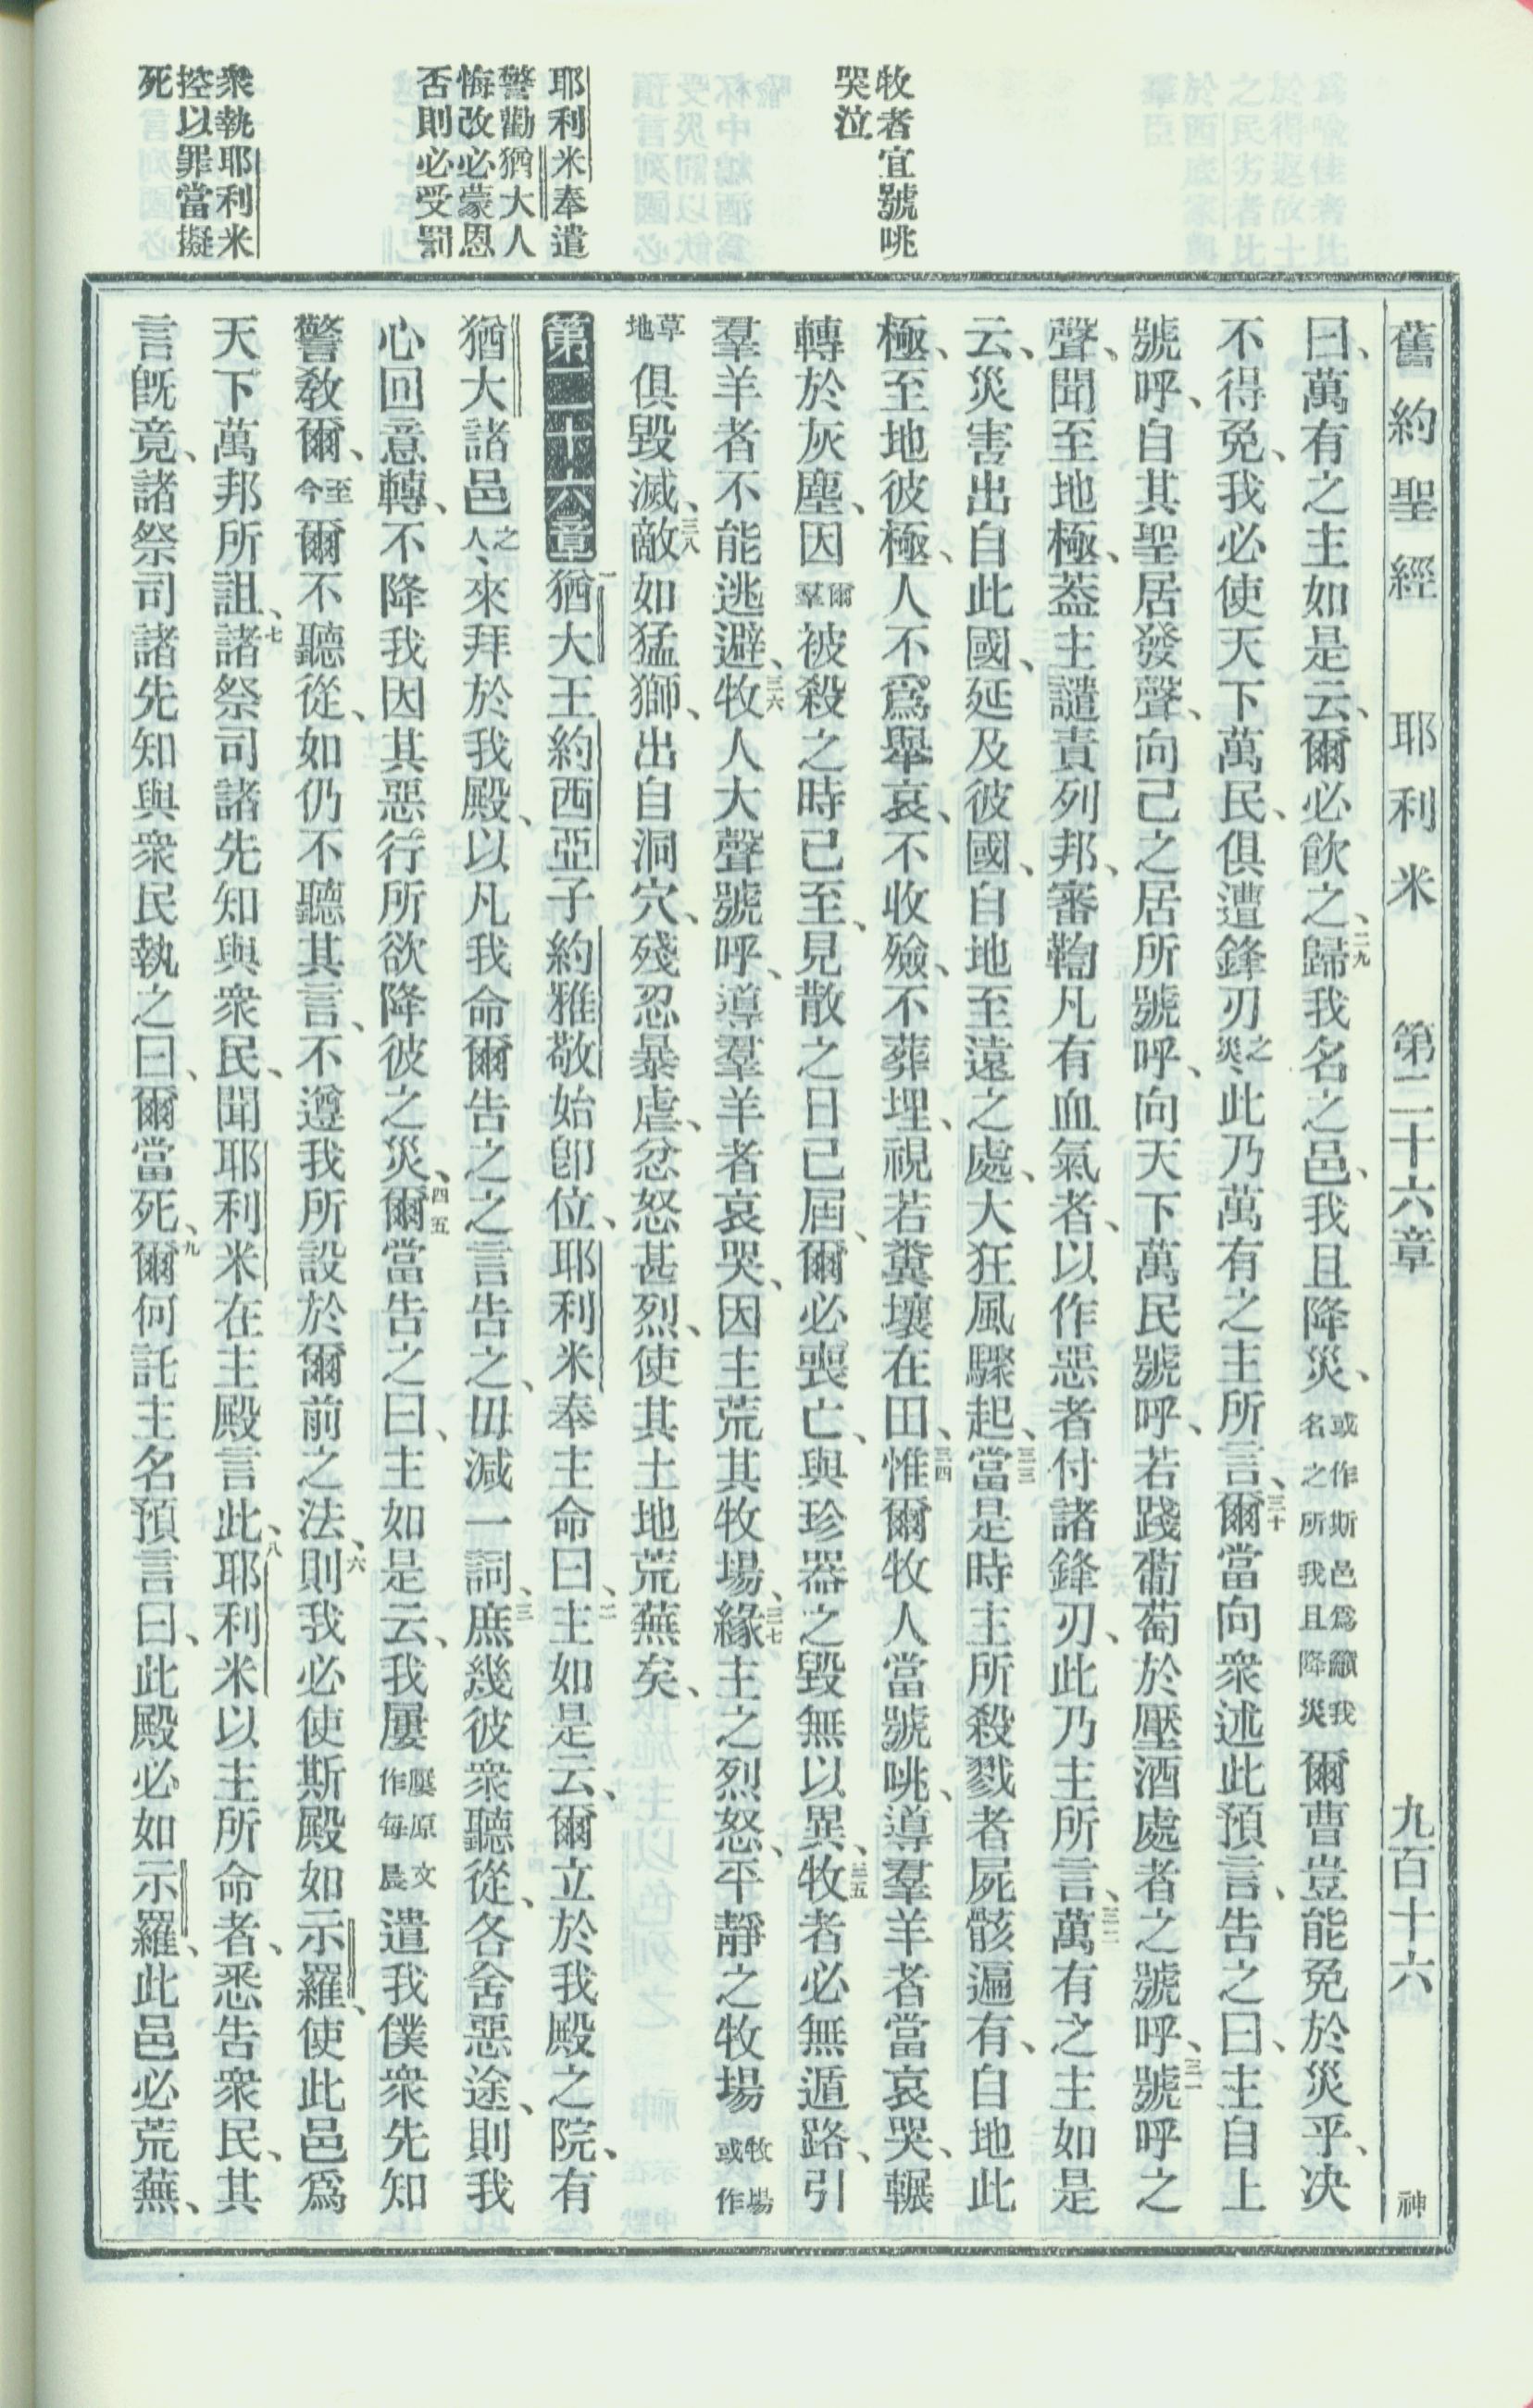 牧者宜號咷
哭泣
耶利米奉遣
警勸猶大人
悔改必蒙恩
否則必受罰
衆執耶利米
控以罪當擬
死
舊約聖經 耶利米 第二十六章 九百十六 神
曰、萬有之主如是云、爾必飲之、二九歸我名之邑、我且降災、或作斯邑爲籲我名之所我且降災爾曹豈能免於災乎、决
不得免、我必使天下萬民、俱遭鋒刃之災、此乃萬有之主所言、三十爾當向衆述此預言、告之曰、主自上
號呼、自其聖居發聲、向己之居所號呼、向天下萬民號呼、若踐葡萄於壓酒處者之號呼、三一號呼之
聲、聞至地極、蓋主譴責列邦、審鞫凡有血氣者、以作惡者付諸鋒刃、此乃主所言、三二萬有之主如是
云、災害出自此國、延及彼國、自地至遠之處、大狂風驟起、三三當是時主所殺戮者屍骸遍有、自地此
極、至地彼極、人不爲舉哀、不收殮、不葬埋、視若糞壤在田、三四惟爾牧人當號咷、導羣羊者當哀哭、輾
轉於灰塵、因爾羣被殺之時已至、見散之日已屆、爾必喪亡、與珍器之毀無以異、三五牧者必無遁路、引
羣羊者不能逃避、三六牧人大聲號呼、導羣羊者哀哭、因主荒其牧場、三七緣主之烈怒、平靜之牧場牧場或作
草地俱毀滅、三八敵如猛獅、出自洞穴、殘忍暴虐、忿怒甚烈、使其土地荒蕪矣、
第二十六章 一猶大王約西亞子約雅敬始卽位、耶利米奉主命曰、二主如是云、爾立於我殿之院、有
猶大諸邑之人、來拜於我殿、以凡我命爾告之之言告之、毋減一詞、三庶幾彼衆聽從、各舍惡途、則我
心回意轉、不降我因其惡行所欲降彼之災、四五爾當告之曰、主如是云、我屢屢原文作每晨遣我僕衆先知
警敎爾、至今爾不聽從、如仍不聽其言、不遵我所設於爾前之法、六則我必使斯殿如示羅、使此邑爲
天下萬邦所詛、七諸祭司諸先知與衆民、聞耶利米在主殿言此、八耶利米以主所命者、悉告衆民、其
言旣竟、諸祭司諸先知與衆民執之曰、爾當死、九爾何託主名預言曰、此殿必如示羅、此邑必荒蕪、